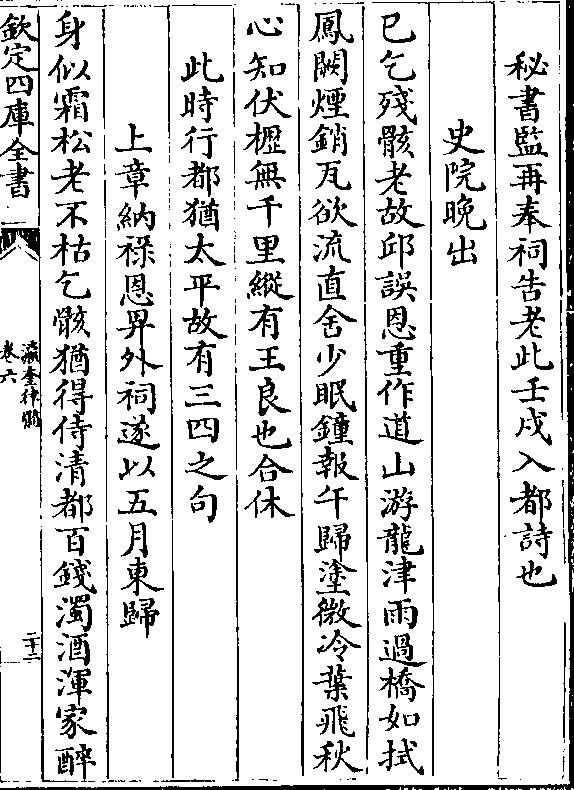 秘書監再奉祠告老此壬戌入都詩也
史院晚出
已乞殘骸老故邱誤恩重作道山游龍津雨過橋如拭
鳳闕煙銷瓦欲流直舍少眠鐘報午歸塗微冷葉飛秋
心知伏櫪無千里縱有王良也合休
此時行都猶太平故有三四之句
上章納祿恩畀外祠遂以五月東歸
身似霜松老不枯乞骸猶得侍清都百錢濁酒渾家醉
欽定四庫全書
瀛奎律髓
卷六
二十二